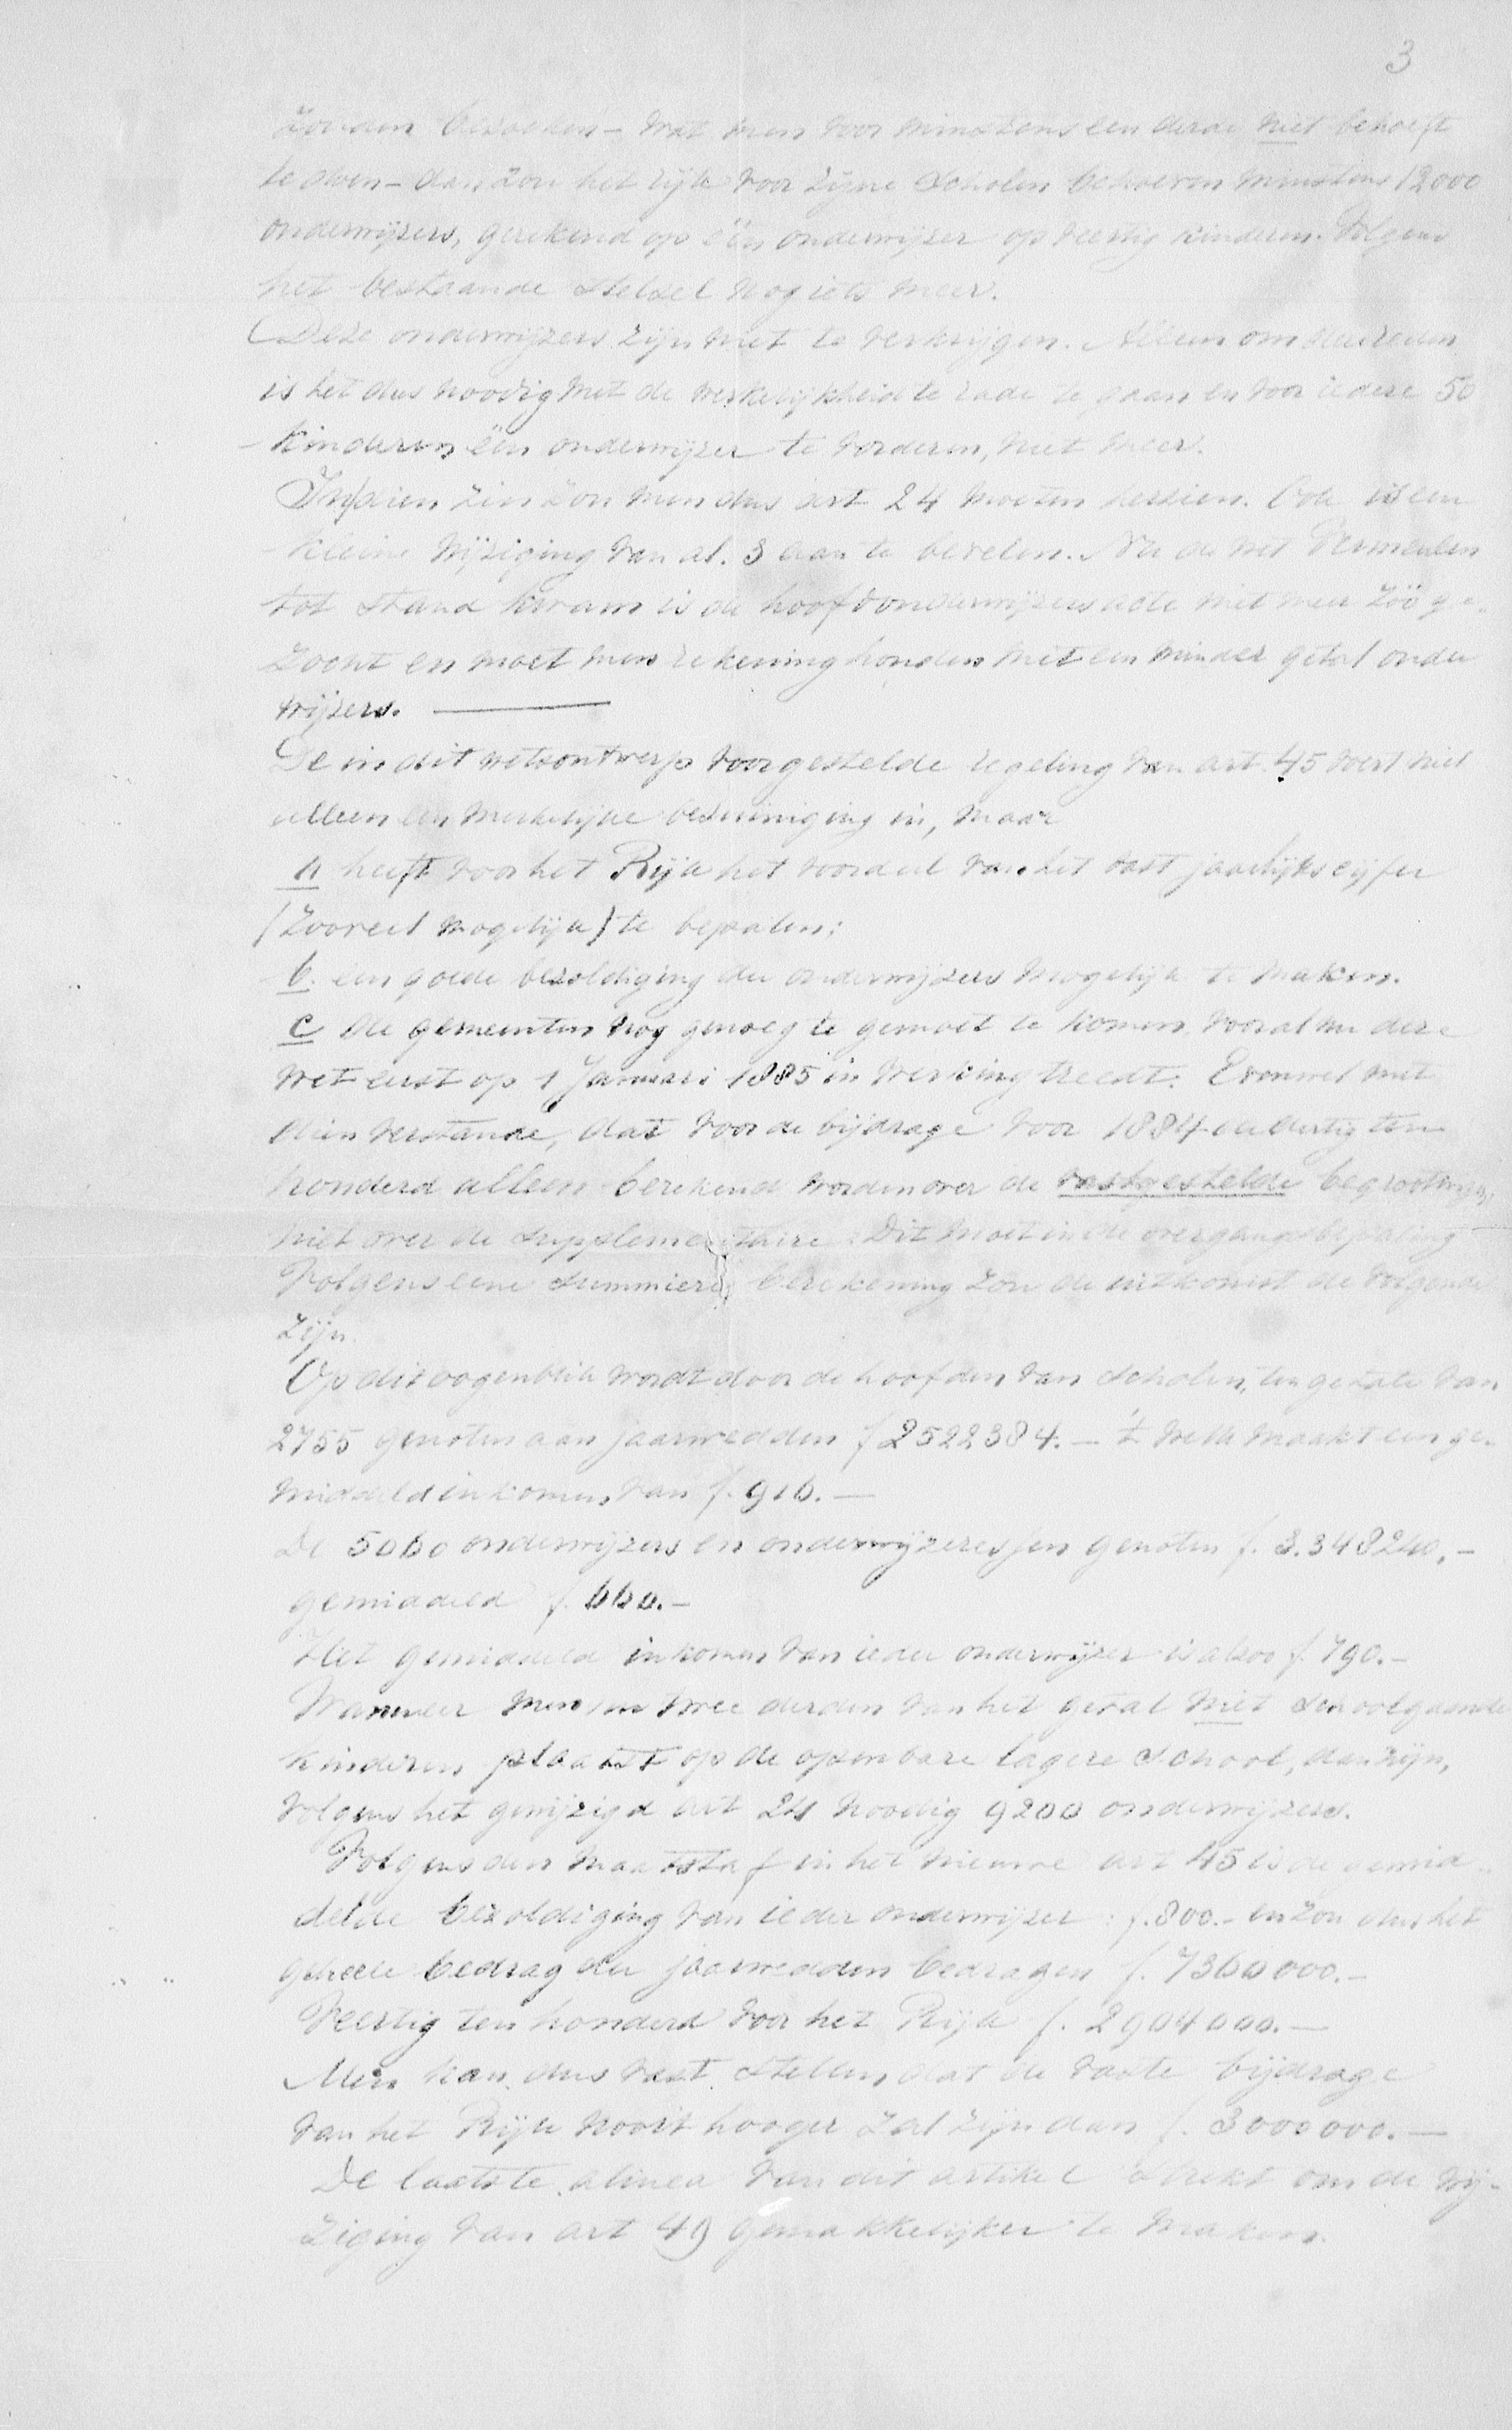 3
zouden bezoeken – wat men voor minstens een derde niet behoeft
te doen – dan zou het rijk voor zijne scholen behoeven minstens 12000
onderwijzers, gerekend op één onderwijzer op veertig kinderen. Volgens
het bestaande stelsel nog iets meer.
Deze onderwijzers zijn niet te verkrijgen. Alleen om die reden
is het dus noodig met de werkelijkheid te rade te gaan en voor iedere 50
kinderen één onderwijzer te vorderen, niet meer.
In dien zin zou men dus art 24 moeten herzien. Ook is een
kleine wijziging van al. 3 aan te bevelen. Nu de wet
tot stand kwam is de hoofdonderwijzersacte niet meer zóó ge-
zocht en moet men rekening houden met een minder getal onder
wijzers. ———
De in dit wetsontwerp voorgestelde regeling van art. 45 voert niet
alleen een merkelijke bezuiniging in, maar
a heeft voor het Rijk het voordeel van het vast jaarlijks cijfer
(zooveel mogelijk) te bepalen;
b. een goede bezoldiging der onderwijzers mogelijk te maken.
c de gemeenten nog genoeg te gemoet te komen, vooral nu deze
wet eerst op 1 Januari 1885 in werking treedt. Evenwel met
dien verstande, dat voor de bijdrage voor 1884 de dertig ten
honderd alleen berekend worden over de vastgestelde begrootingen,
niet over de supplementaire. Dit moet in de overgangsbepaling
Volgens eene summiere berekening zou de uitkomst de volgende
zijn.
Op dit oogenblik wordt door de hoofden van scholen, ten getale van
2755 genoten aan jaarwedden f 2522384.– 't welk maakt een ge-
middeld inkomen van f. 916.—
De 5060 onderwijzers en onderwijzeressen genoten f. 3.348240.–
gemiddeld f. 660.–
Het gemiddeld inkomen van ieder onderwijzer is alzoo f. 790.–
Wanneer men nu twee derden van het getal niet schoolgaande
kinderen plaatst op de openbare lagere school, dan zijn,
volgens het gewijzigd art 24 noodig 9200 onderwijzers.
Volgens den maatstaf in het nieuwe art 45 is de gemid-
delde bezoldiging van ieder onderwijzer : f. 800.– en zou dus het
geheele bedrag der jaarwedden bedragen f. 7360000.–
Veertig ten honderd voor het Rijk f. 2904000.—
Men kan dus vast stellen, dat de vaste bijdrage
van het Rijk nooit hooger zal zijn dan f. 3000000.—
De laatste alinea van dit artikel strekt om de wij-
ziging van art 49 gemakkelijker te maken.